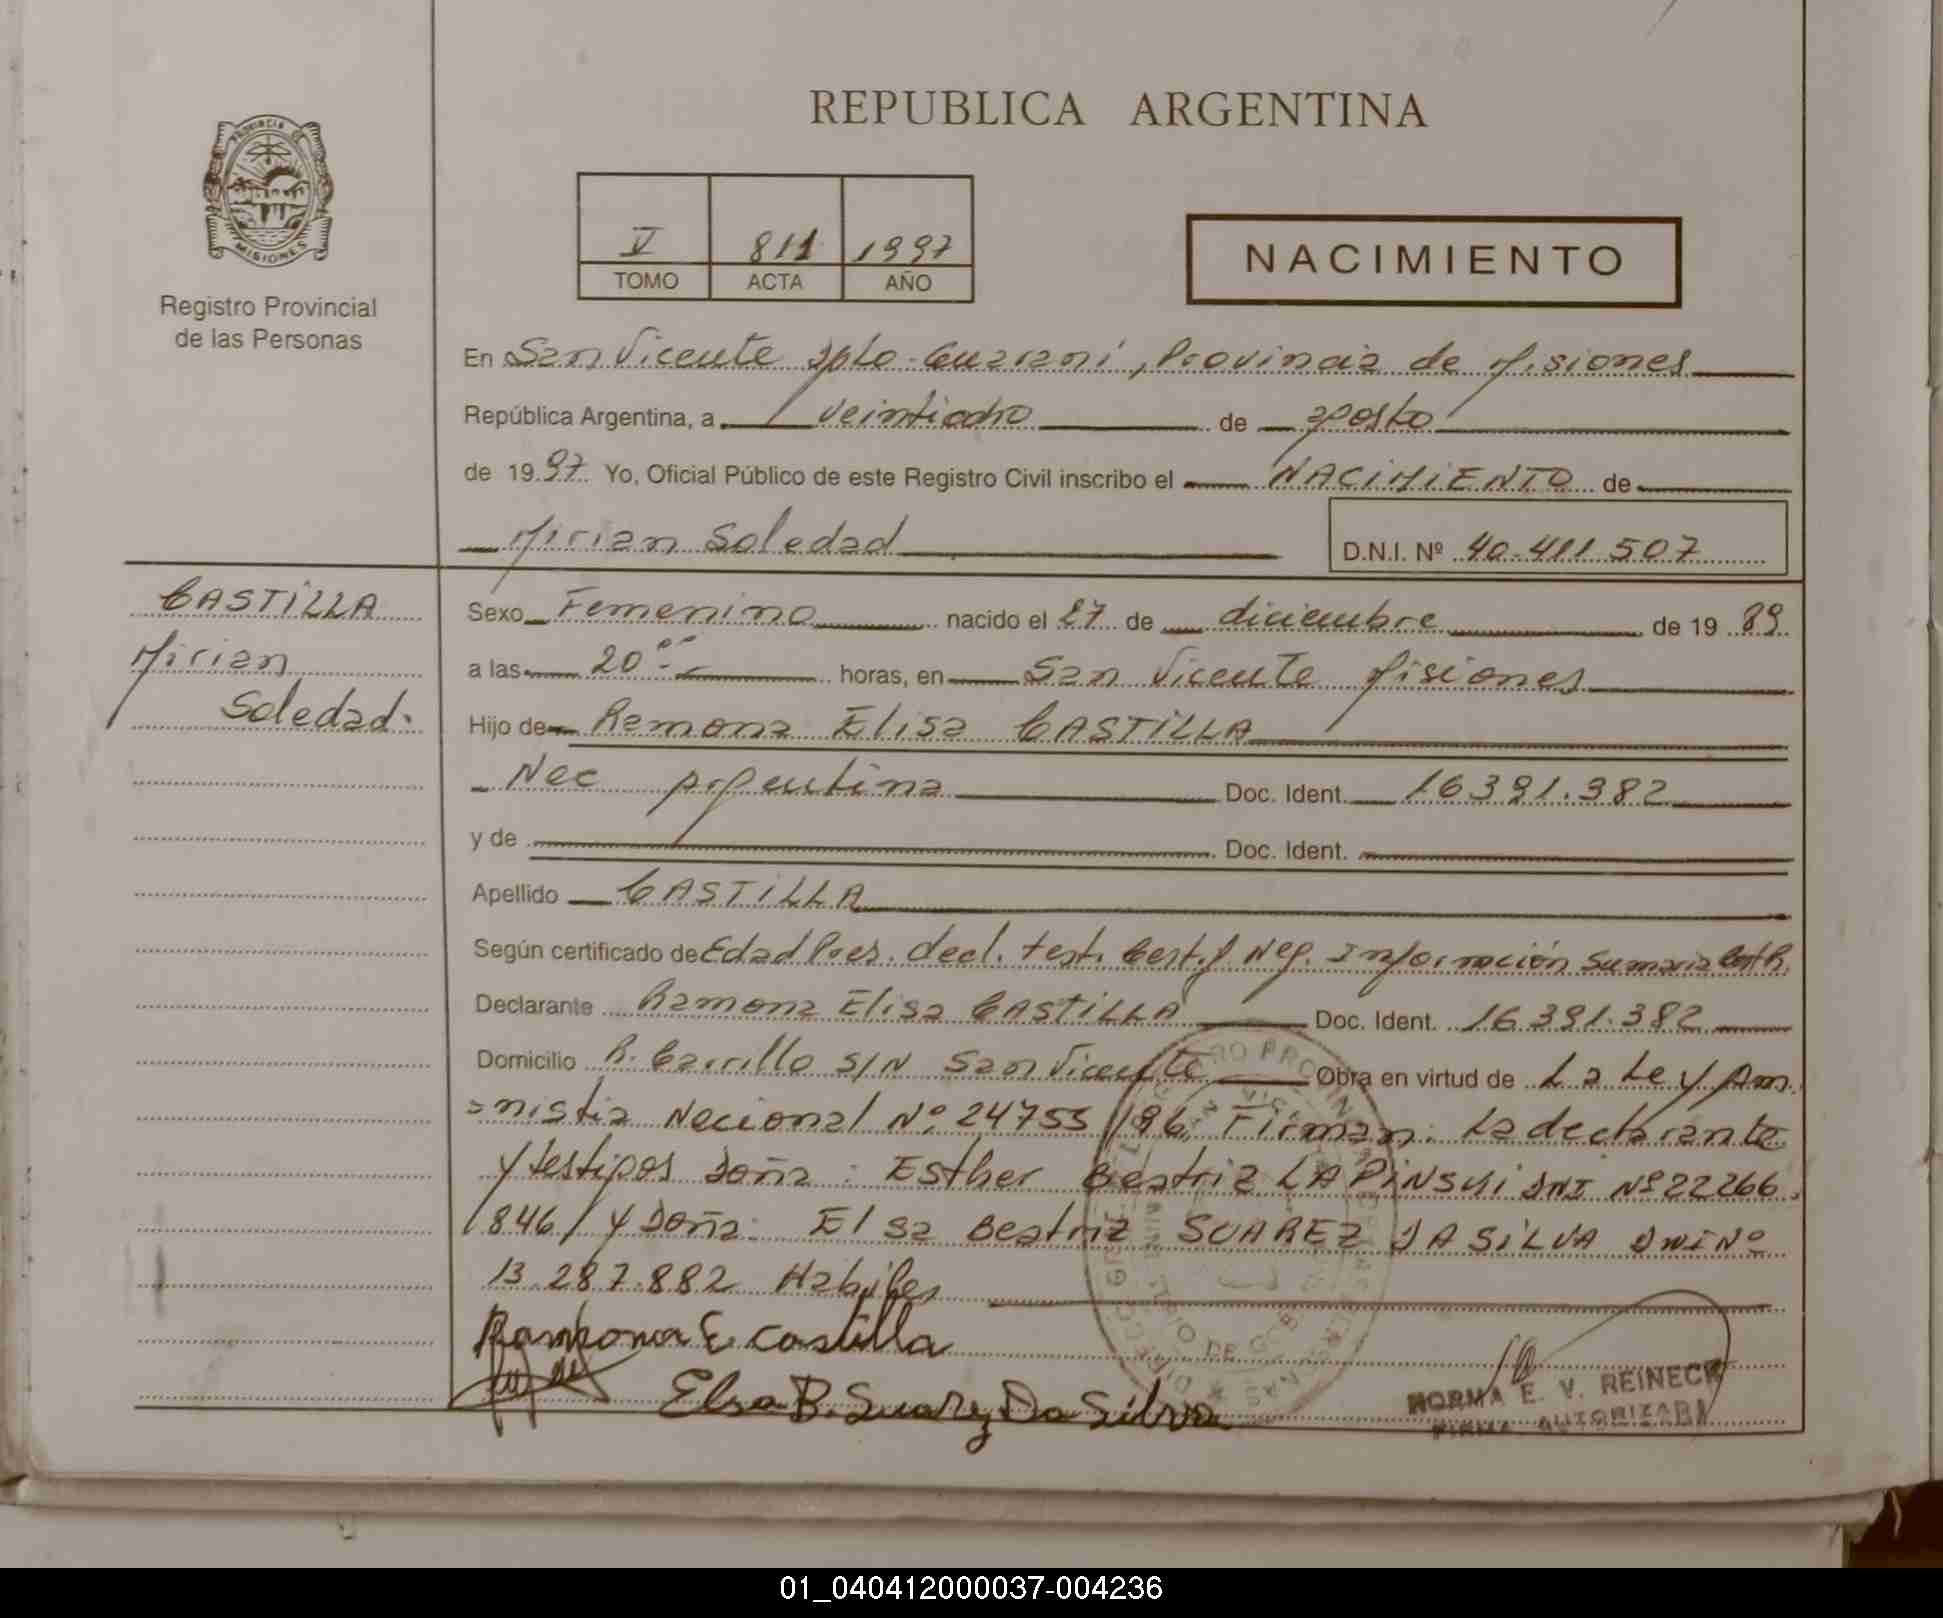 REPUBLICA ARGENTINA
PROVINCIA DE
MISIONES
Registro Provincial
de las Personas
V 811 1997
TOMO ACTA AÑO
NACIMIENTO
En San Vicente Dpto. Guarani, Provincia de Misiones
República Argentina, a veintiocho de agosto
de 1997 Yo, Oficial Público de este Registro Civil inscribo el NACIMIENTO de
Mirian Soledad D.N.I. Nº 40.411.507
CASTILLA
Mirian
Soledad.
Sexo Femenino nacido el 27 de diciembre de 19 89
a las 20 horas, en San Vicente Misiones
Hijo de Ramona Elisa CASTILLA
Nac Argentina Doc. Ident. 16.391.382
y de Doc. Ident.
Apellido CASTILLA
Según certificado de Edad Pres. decl. test. Cert. Neg. Información Sumaria
Declarante Ramona Elisa CASTILLA Doc. Ident. 16.391.382
Domicilio R. Carrillo S/N San Vicente Obra en virtud de La Ley Am
=nistia Nacional Nº 24755/96. Firman: La declarante
y testigos Doña: Esther Beatriz LAPINSKI DNI Nº 22266
846/ y Doña: Elsa Beatriz SUAREZ DA SILVA DNI Nº
13.287.882 Habiles
Ramona E Castilla
Elsa B. Suarez Da Silva
NORMA E. V. REINECK
FIRMA AUTORIZADA
01_040412000037-004236